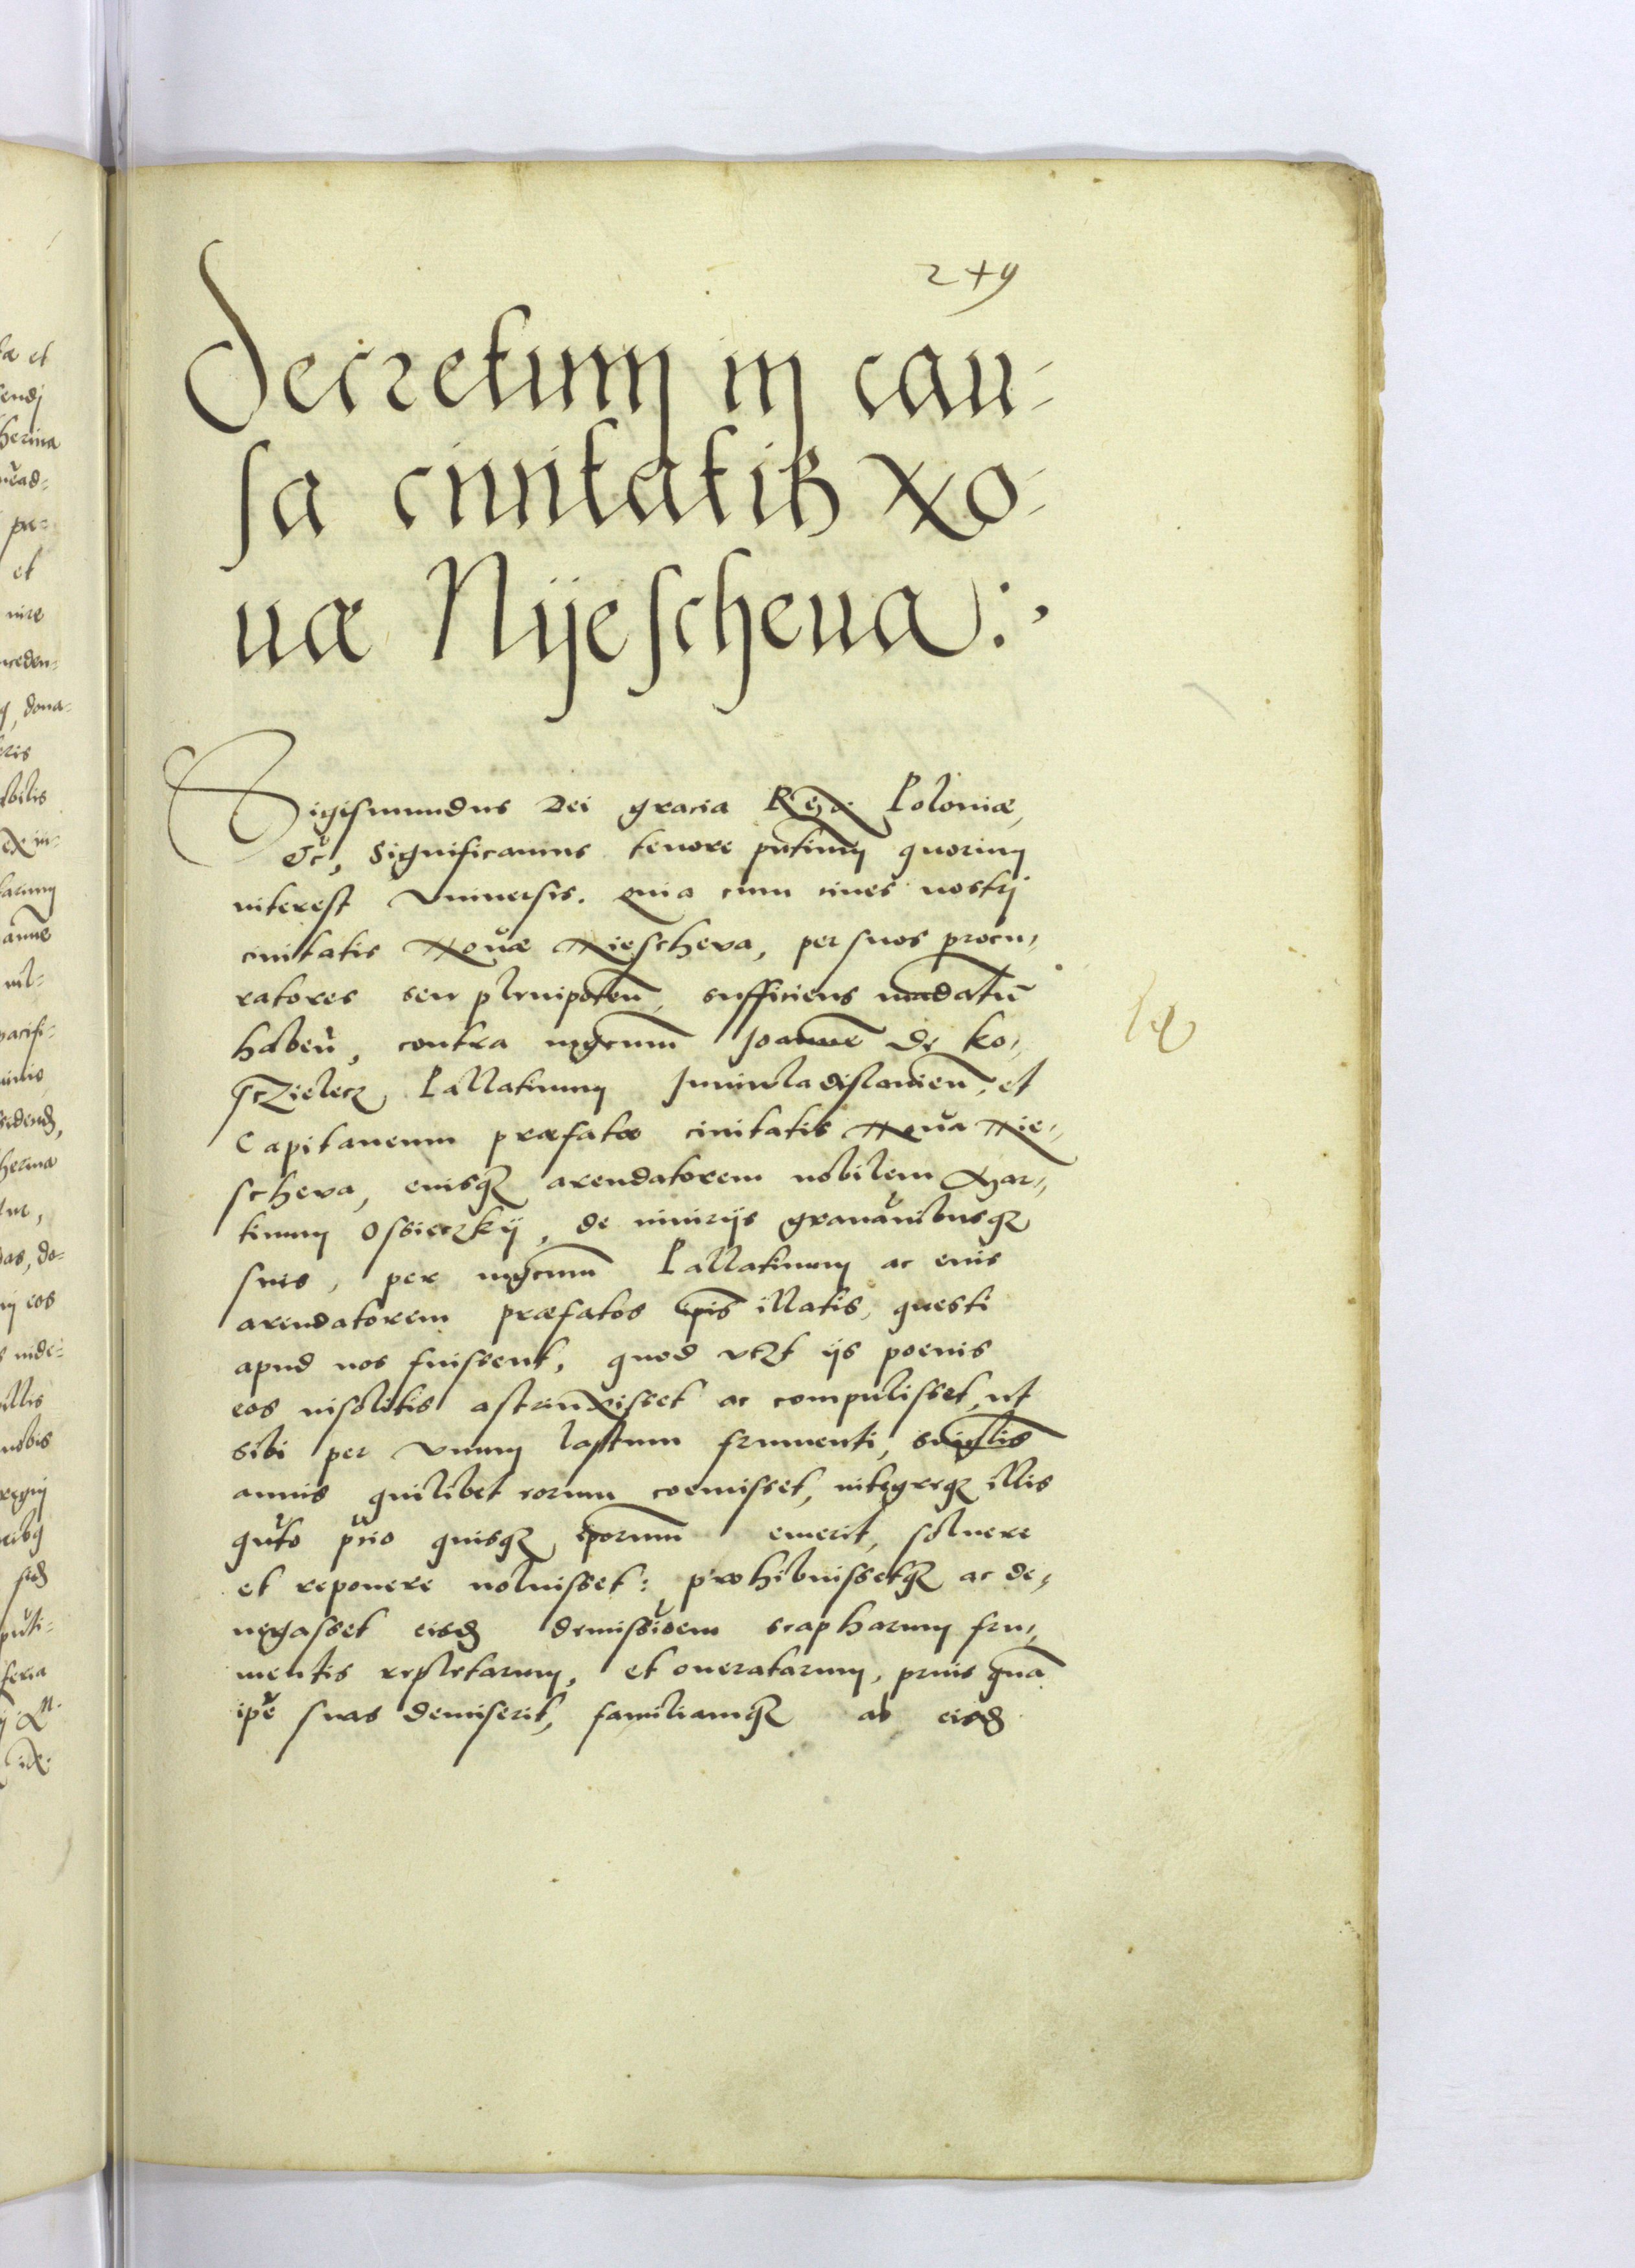 249
Decretum in cau-
sa ciuitatis No-
uæ Nijescheua:
Sigismundus Dei gracia Rex Poloniæ,
&c, Significamus tenore pntium quorum
interest Vniuersis. quia cum ciues nostrj
ciuitatis Nouæ Niescheva, per suos procu-
ratores seu plenipoten, sufficiens madatū
haben, contra mgcum Joannē de Ko-
sczielecz Pallatinum Juniuladislauien, et
Capitaneum præfatæ ciuitatis Noua Nie-
scheva, eiusq3 arendatorem nobilem Mar-
tinum Ossieczkij, de iniurijs grauaminibusq3
suis, per mgcum Pallatinum ac eius
arendatorem præfatos ipis illatis, questi
apud nos fuissent, quod vt3 ijs poenis
eos insolitis astrinxisset ac compulisset, ut
sibi per vnum lastum frumenti, singlis
annis quilibet eorum coemisset, integreq3 illis
quto prio quisq3 iporum emerit, soluere
et reponere noluisset: prohibuissetq3 ac de-
negasset eisd demissioem scapharum fru-
mentis repletarum, et oneratarum, prius quā
ipe suas demiserit, familiamq3 ab eisd